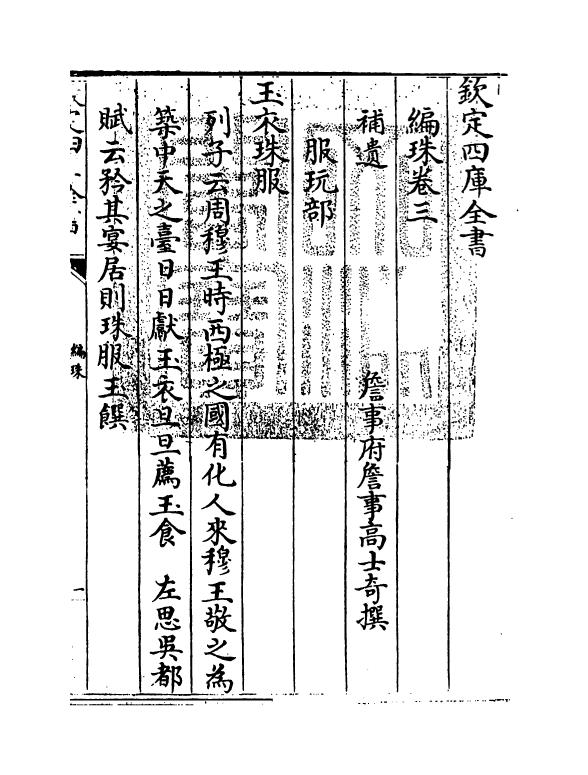 欽定四庫全書
編珠卷三
補遺　　　　詹事府詹事高士奇撰
服玩部
玉衣珠服
列子云周穆王時西極之國有化人來穆王敬之為
築中天之臺日日獻玉衣旦旦薦玉食　左思吳都
賦云矜其宴居則珠服玉饌
編珠
一